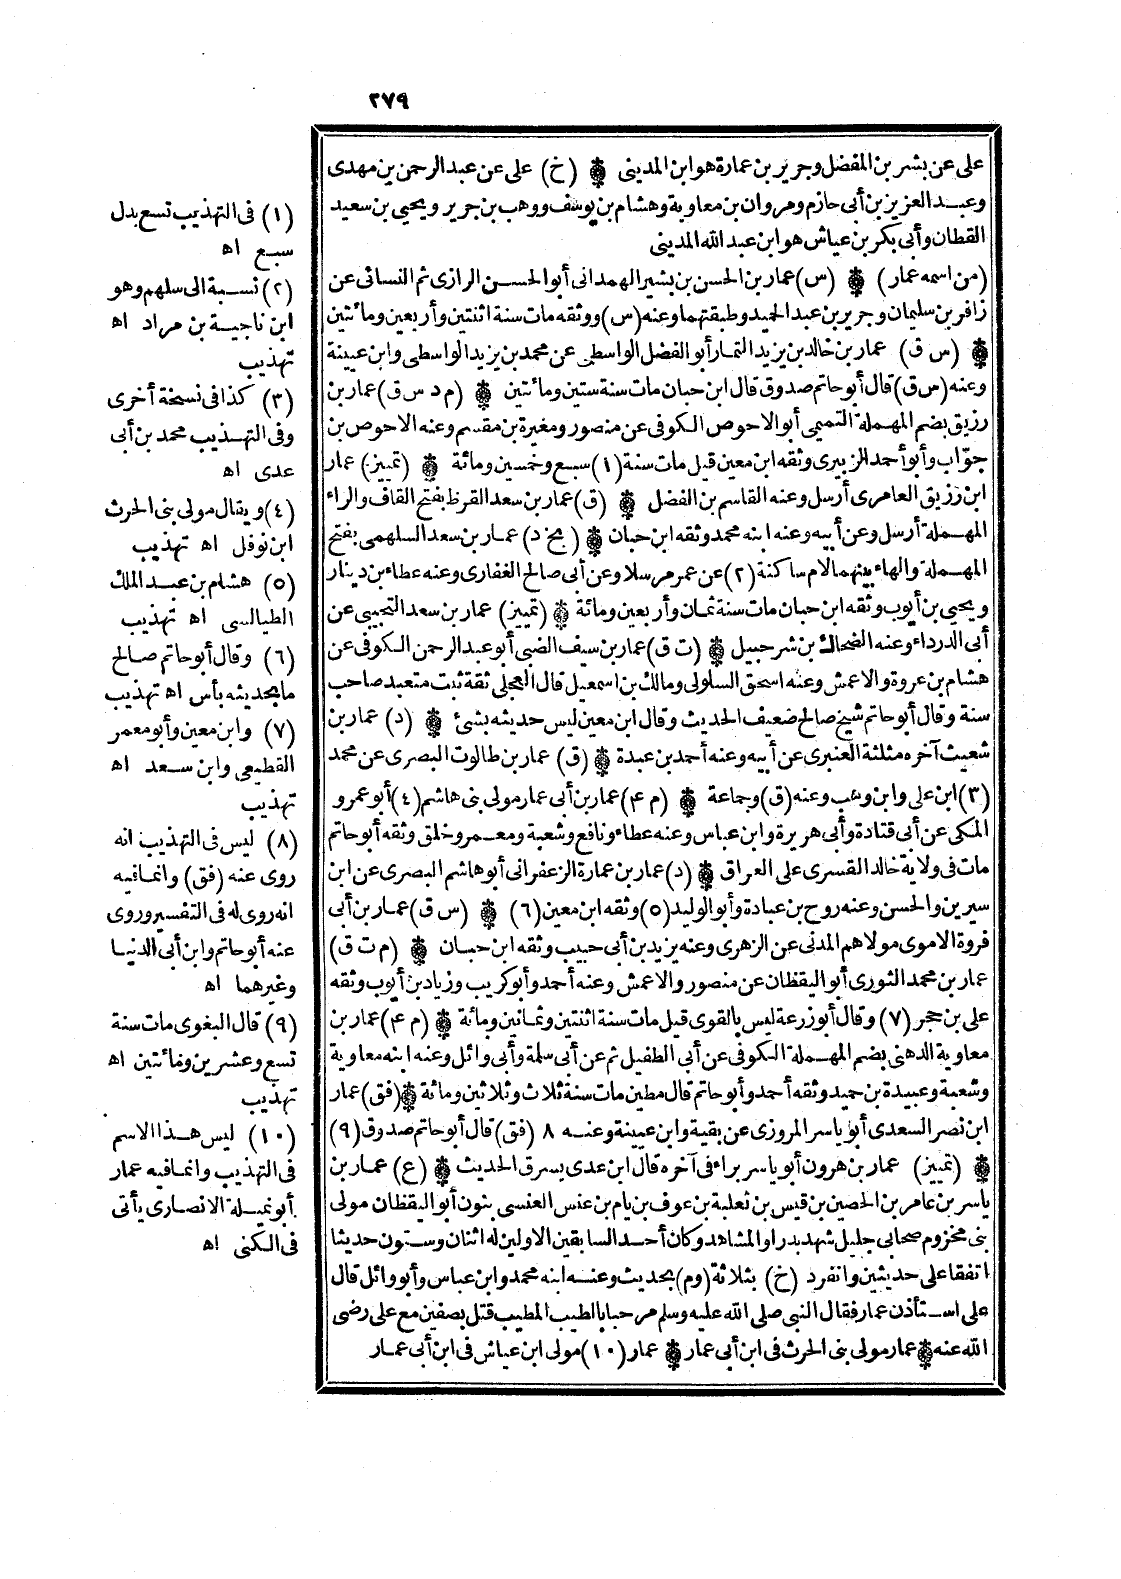 ٢٧٩
على عن بشر بن المفضل وجرير بن عمارة هو ابن المدينى ۞ (خ) على عن عبد الرحمن بن مهدى
وعبد العزيز بن أبى حازم ومروان بن معاوية وهشام بن يوسف ووهب بن جرير ويحيى بن سعيد
القطان وأبى بكر بن عياش هو ابن عبد الله المدينى
(من اسمه عمار) ۞ (س) عمار بن الحسن بن بشير الهمدانى أبو الحسن الرازى ثم النسائى عن
زافر بن سليمان وجرير بن عبد الحميد وطبقتهما وعنه (س) ووثقه مات سنة اثنتين وأربعين ومائتين
۞ (س ق) عمار بن خالد بن يزيد التمار أبو الفضل الواسطى عن محمد بن يزيد الواسطى وابن عيينة
وعنه (س ق) قال أبو حاتم صدوق قال ابن حبان مات سنة ستين ومائتين ۞ (م د س ق) عمار بن
رزيق بضم المهملة التميمى أبو الاحوص الكوفى عن منصور ومغيرة بن مقسم وعنه الاحوص بن
جوّاب وأبو أحمد الزبيرى وثقه ابن معين قيل مات سنة (١) سبع وخمسين ومائة ۞ (تمييز) عمار
ابن رزيق العامرى أرسل وعنه القاسم بن الفضل ۞ (ق) عمار بن سعد القرظ بفتح القاف والراء
المهملة أرسل وعن أبيه وعنه ابنه محمد وثقه ابن حبان ۞ (بخ د) عمار بن سعد السلهمى بفتح
المهملة والهاء بينهما لام ساكنة (٢) عن عمر مرسلا وعن أبى صالح الغفارى وعنه عطاء بن دينار
ويحيى بن أيوب وثقه ابن حبان مات سنة ثمان وأربعين ومائة ۞ (تمييز) عمار بن سعد التجيبى عن
أبى الدرداء وعنه الضحاك بن شرحبيل ۞ (ت ق) عمار بن سيف الضبى أبو عبد الرحمن الكوفى عن
هشام بن عروة والاعمش وعنه اسحق السلولى ومالك بن اسمعيل قال العجلى ثقة ثبت متعبد صاحب
سنة وقال أبو حاتم شيخ صالح ضعيف الحديث وقال ابن معين ليس حديثه بشئ ۞ (د) عمار بن
شعيث آخره مثلثة العنبرى عن أبيه وعنه أحمد بن عبدة ۞ (ق) عمار بن طالوت البصرى عن محمد
(٣) ابن على وابن وهب وعنه (ق) وجماعة ۞ (م ٤) عمار بن أبى عمار مولى بنى هاشم (٤) أبو عمرو
المكى عن أبى قتادة وأبى هريرة وابن عباس وعنه عطاء ونافع وشعبة ومعمر وخلق وثقه أبو حاتم
مات فى ولاية خالد القسرى على العراق ۞ (د) عمار بن عمارة الزعفرانى أبو هاشم البصرى عن ابن
سيرين والحسن وعنه روح بن عبادة وأبو الوليد (٥) وثقه ابن معين (٦) ۞ (س ق) عمار بن أبى
فروة الاموى مولاهم المدنى عن الزهرى وعنه يزيد بن أبى حبيب وثقه ابن حبان ۞ (م ت ق)
عمار بن محمد الثورى أبو اليقظان عن منصور والاعمش وعنه أحمد وأبو كريب وزياد بن أيوب وثقه
على بن حجر (٧) وقال أبو زرعة ليس بالقوى قيل مات سنة اثنتين وثمانين ومائة ۞ (م ٤) عمار بن
معاوية الدهنى بضم المهملة الكوفى عن أبى الطفيل ثم عن أبى سلمة وأبى وائل وعنه ابنه معاوية
وشعبة وعبيدة بن حميد وثقه أحمد وأبو حاتم قال مطين مات سنة ثلاث وثلاثين ومائة ۞ (فق) عمار
ابن نصر السعدى أبو ياسر المروزى عن بقية وابن عيينة وعنه ٨ (فق) قال أبو حاتم صدوق (٩)
۞ (تمييز) عمار بن هرون أبو ياسر براء فى آخره قال ابن عدى يسرق الحديث ۞ (ع) عمار بن
ياسر بن عامر بن الحصين بن قيس بن ثعلبة بن عوف بن يام بن عنس العنسى بنون أبو اليقظان مولى
بنى مخزوم صحابى جليل شهد بدرا والمشاهد وكان أحد السابقين الاولين له اثنان وستون حديثا
اتفقا على حديثين وانفرد (خ) بثلاثة (وم) بحديث وعنه ابنه محمد وابن عباس وأبو وائل قال
على استأذن عمار فقال النبى صلى الله عليه وسلم مرحبا بالطيب المطيب قتل بصفين مع على رضى
الله عنه ۞ عمار مولى بنى الحرث فى ابن أبى عمار ۞ عمار (١٠) مولى ابن عياش فى ابن أبى عمار
(١) فى التهذيب تسع بدل
سبع اه
(٢) نسبة الى سلهم وهو
ابن ناجية بن مراد اه
تهذيب
(٣) كذا فى نسخة أخرى
وفى التهذيب محمد بن أبى
عدى اه
(٤) ويقال مولى بنى الحرث
ابن نوفل اه تهذيب
(٥) هشام بن عبد الملك
الطيالسى اه تهذيب
(٦) وقال أبو حاتم صالح
ما بحديثه بأس اه تهذيب
(٧) وابن معين وأبو معمر
القطيعى وابن سعد اه
تهذيب
(٨) ليس فى التهذيب انه
روى عنه (فق) وانما فيه
انه روى له فى التفسير وروى
عنه أبو حاتم وابن أبى الدنيا
وغيرهما اه
(٩) قال البغوى مات سنة
تسع وعشرين ومائتين اه
تهذيب
(١٠) ليس هذا الاسم
فى التهذيب وانما فيه عمار
أبو نميلة الانصارى يأتى
فى الكنى اه